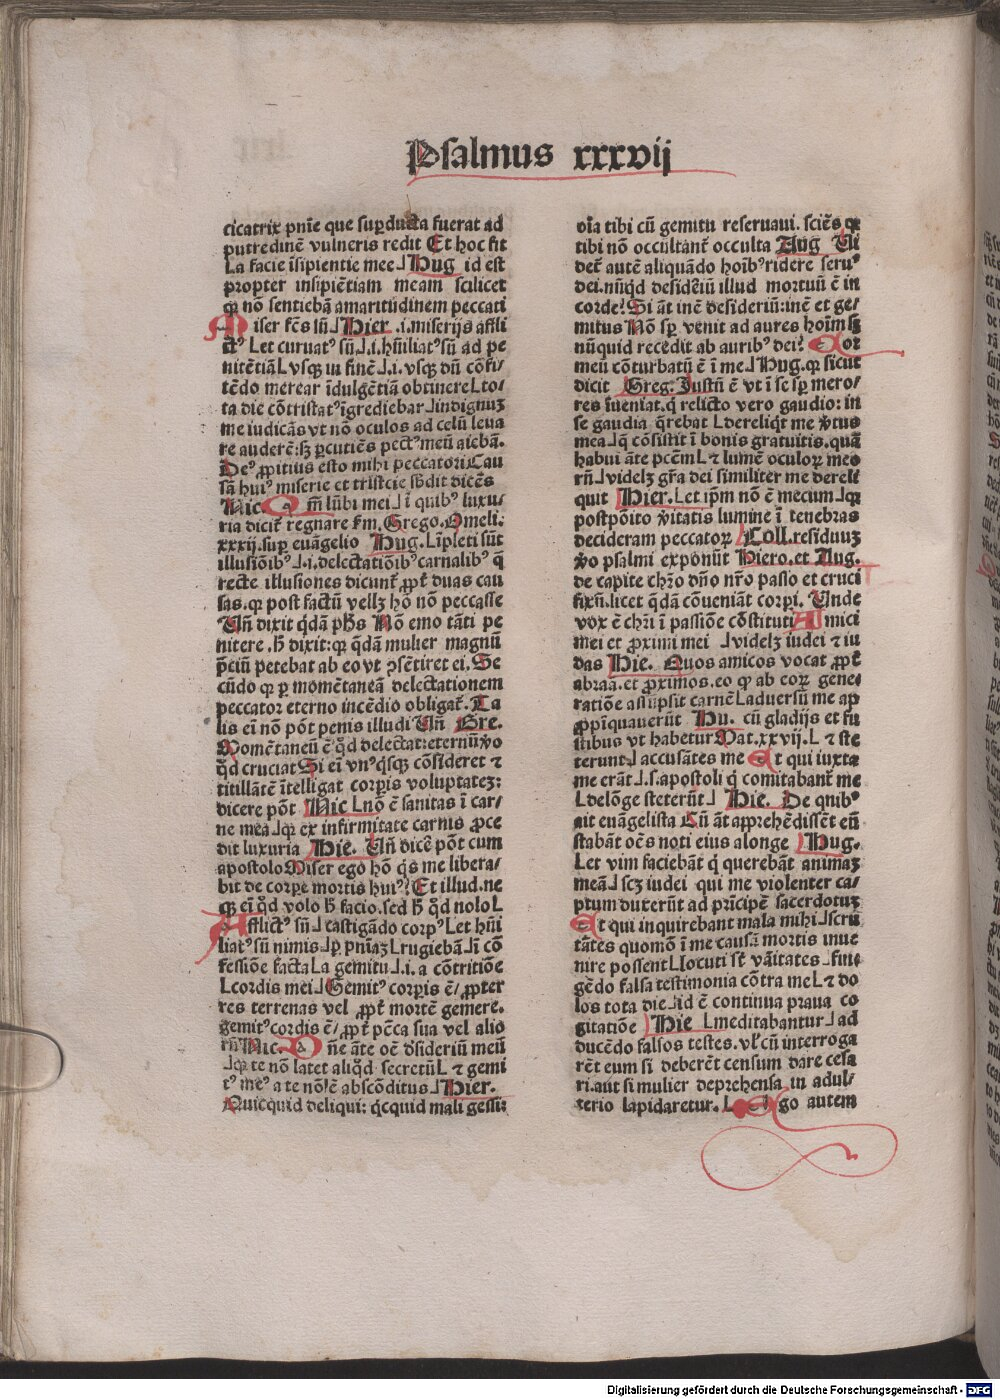 Psalmus xxxvij
cicatrix pn̄ie que suꝑducta fuerat ad
putredinē vulneris redit Et hoc fit
La facie īsipientie mee⅃Hug id est
propter insipiētiam meam scilicet
qꝛ nō sentiebā amaritudinem peccati
Miser fc̄s sū⅃Hier .i.miserijs affli
ctꝰ Let curuatꝰ sū⅃.i.hūiliatꝰ sū ad pe
nitētiāL vsqꝫ in finē⅃.i.vsqꝫ dū cōfi/
tēdo merear īdulgētiā obtinereLto/
ta die cōtristatꝰ īgrediebar⅃indignuꝫ
me iudicās vt nō oculos ad celū leua
re auderē:sꝫ ꝑcutiēs pectꝰ meū aiebā.
Deꝰ ꝓpitius esto mihi peccatori Cau
sā huiꝰ miserie et tristicie sb̄dit dicēs
Nic Qm̄ lūbi mei⅃ī quibꝰ luxu/
ria dicit᷑ regnare km̄.Grego.Omeli.
xxxij.suꝑ euāgelio Hug.Līpleti sūt
illusiōibꝰ⅃.i.delectatiōibꝰ carnalibꝰ q̄
recte illusiones dicunt᷑ ꝓpt᷑ duas cau
sas.qꝛ post factū velleꝫ hō nō peccasse
Vn̄ dixit qdā ph̄s Nō emo tāti pe
nitere .h̄ dixit:qꝛ q̄dā mulier magnū
p̄ciū petebat ab eo vt ꝯsētiret ei.Se
cūdo qꝛ ꝑ momētaneā delectationem
peccator eterno incēdio obligat᷑.Ta
lis eī nō pōt penis illudi Vn̄ Gre.
Momētaneū ē qd̄ delectat:eternū ṽo
qd̄ cruciat Si eī vnꝰqsqꝫ cōsideret ⁊
titillātē ītelligat corꝑis voluptateꝫ:
dicere pōt Nic Lnō ē sanitas ī car/
ne mea⅃qꝛ ex infirmitate carnis ꝓce
dit luxuria Hie. Vn̄ dicē pōt cum
apostolo Miser ego hō q̄s me libera/
bit de corꝑe mortis huiꝰ? Et illud.ne
qꝫ eī qd̄ volo h̄ facio.sed h̄ qd̄ noloL
Afflictꝰ sū⅃castigādo corpꝰ Let hūi
liatꝰ sū nimis⅃ꝑ pn̄iaꝫLrugiebā⅃ī cō
fessiōe factaLa gemitu⅃.i.a cōtritiōe
Lcordis mei⅃Gemitꝰ corꝑis ē/ ꝓpter
res terrenas vel ꝓpt᷑ mortē gemere.
gemitꝰ cordis ē/ ꝓpt᷑ pcc̄a sua vel alio
rū Nic. Dn̄e āte oē dsideriū meū
⅃qꝛ te nō latet aliqd̄ secretūL ⁊ gemi
tꝰ meꝰ a te nō ē abscōditus⅃Hier.
Quicquid deliqui: qcquid mali gessi:
oīa tibi cū gemitu reseruaui. sciēs qꝛ
tibi nō occultant᷑ occulta Aug Vi
det᷑ autē aliquādo hoībꝰ ridere seruꝰ
dei.nūqd desideriū illud mortuū ē in
corde? Si āt inē desideriū:inē et ge/
mitus Nō sp̄ venit ad aures hoīm sꝫ
nūquid recedit ab auribꝰ dei? Cor
meū cōturbatū ē ī me⅃Hug.qꝛ sicut
dicit Greg.Iustū ē vt ī se sp̄ mero/
res īueniat.q relicto vero gaudio: in
se gaudia q̄rebat Ldereliqt me ṽtus
mea⅃q̄ cōsistit ī bonis gratuitis.quā
habui āte pctm̄L⁊ lumē oculoꝝ meo
rū⅃videlꝫ gr̄a dei similiter me dereli
quit Hier.Let ip̄m nō ē mecum⅃qꝛ
postpōito ṽitatis lumine ī tenebras
decideram peccatoꝝ Coll.residuuꝫ
ṽo psalmi exponūt Hiero.et Aug.
de capite chr̄o dn̄o nr̄o passo et cruci
fixū.licet qdā cōueniāt corpi. Unde
vox ē chr̄i ī passiōe cōstituti Amici
mei et ꝓximi mei ⅃videlꝫ iudei ⁊ iu
das Hie. Quos amicos vocat ꝓpt᷑
abraā.et ꝓximos.eo qꝛ ab eoꝝ gene/
ratiōe assūpsit carnēLaduersū me ap
ꝓpīquauerūt Hu. cū gladijs et fu
stibus vt habetur Mat.xxvij.L ⁊ ste
terunt⅃accusātes me Et qui iuxta
me erāt⅃.s.apostoli q comitabant᷑ me
Ldelōge steterūt⅃ Hie. De quibꝰ
ait euāgelista Cū āt apprehēdissēt eū
stabāt oēs noti eius alonge Hug.
Let vim faciebāt q querebāt animaꝫ
meā⅃scꝫ iudei qui me violenter ca/
ptum duxerūt ad prīcipē sacerdotuꝫ
Et qui inquirebant mala mihi⅃scru
tātes quomō ī me causā mortis inue
nire possentLlocuti st̄ vāitates⅃fin/
gēdo falsa testimonia cōtra meL⁊ do
los tota die⅃id ē continua praua co
gitatiōe Hie Lmeditabantur⅃ad
ducēdo falsos testes.vl᷑ cū interroga
rēt eum si deberēt censum dare cesa
ri.aut si mulier deprehensa in adul/
terio lapidaretur.L Ego autem
Digitalisierung gefördert durch die Deutsche Forschungsgemeinschaft - DFG